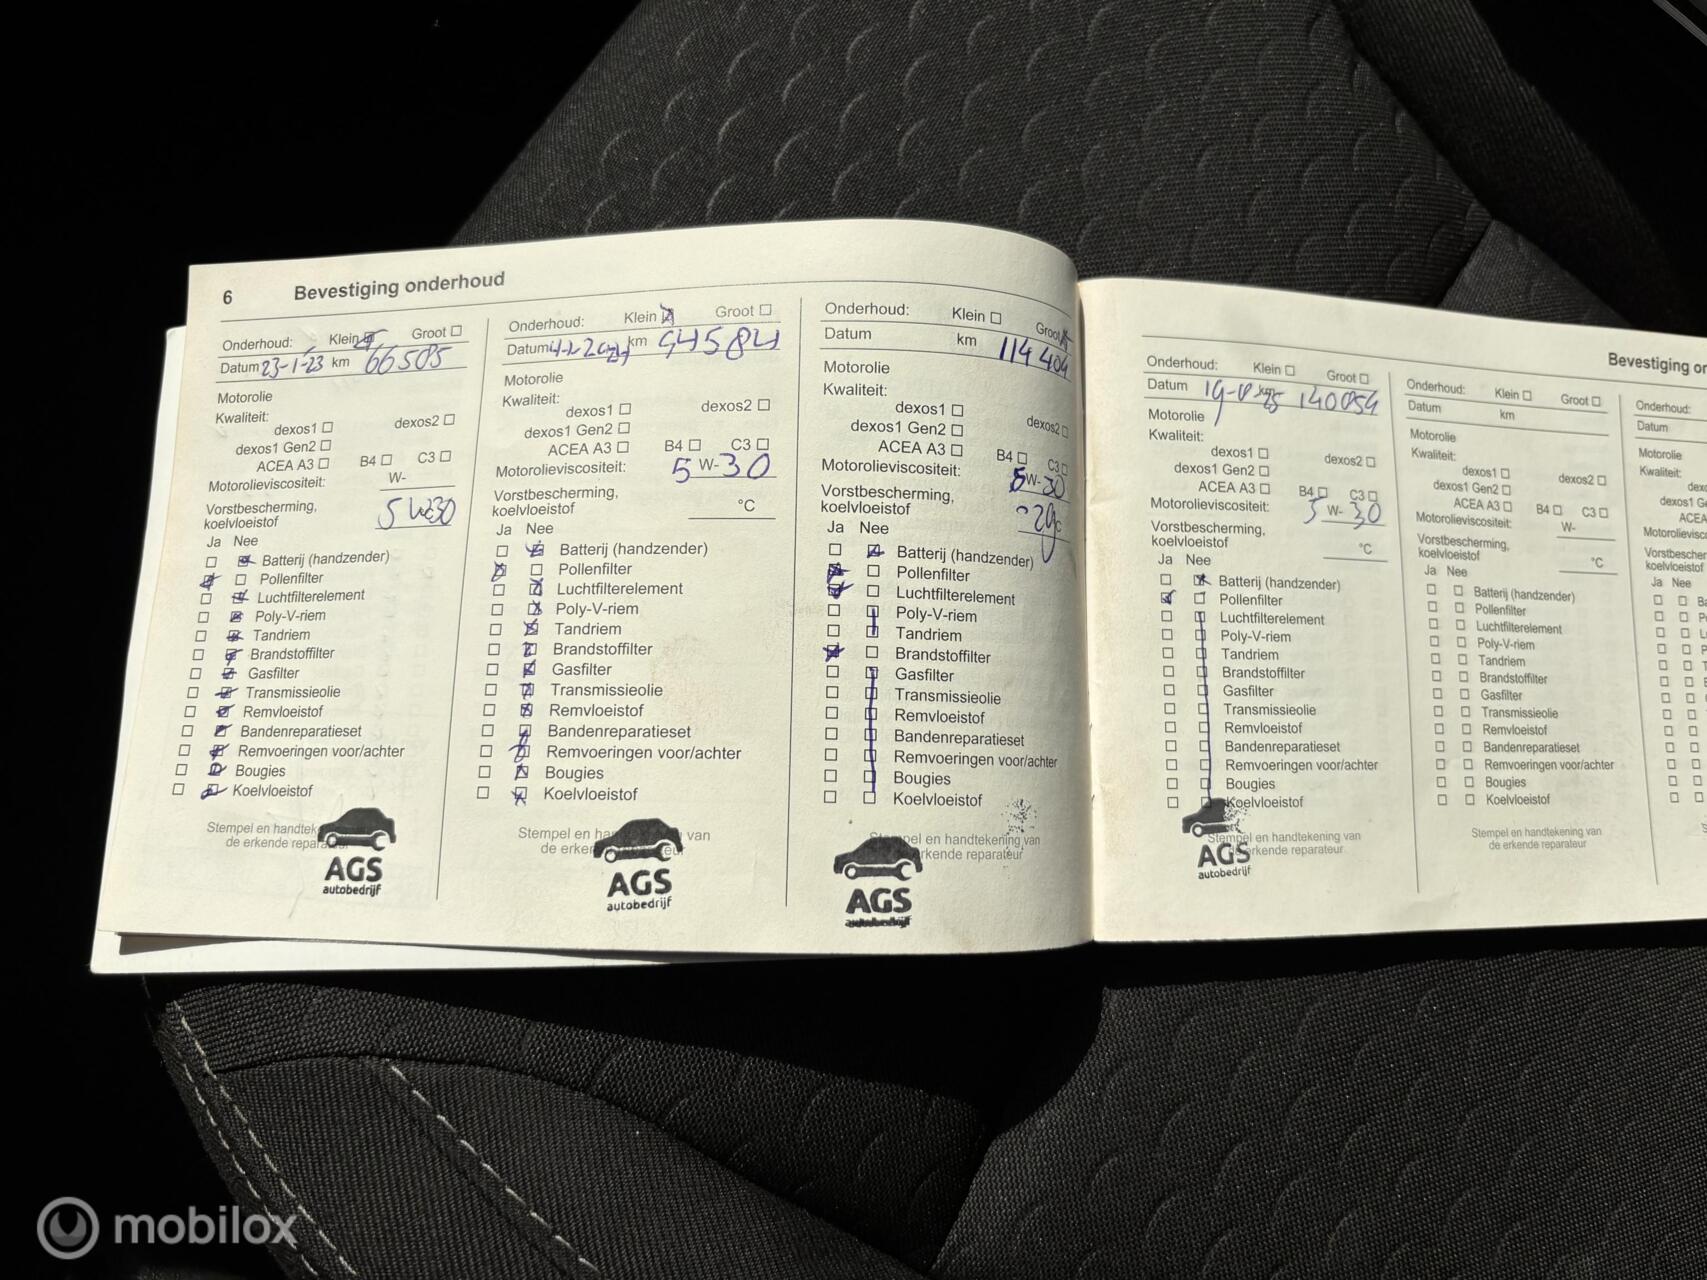 6 Bevestiging onderhoud
Onderhoud: Klein Groot
Datum 23-1-23 km 66585
Motorolie
Kwaliteit:
dexos1 dexos2
dexos1 Gen2
ACEA A3 B4 C3
Motorolieviscositeit: W-
Vorstbescherming,
koelvloeistof 5W30
Ja Nee
Batterij (handzender)
Pollenfilter
Luchtfilterelement
Poly-V-riem
Tandriem
Brandstoffilter
Gasfilter
Transmissieolie
Remvloeistof
Bandenreparatieset
Remvoeringen voor/achter
Bougies
Koelvloeistof
Stempel en handteke
de erkende repara
AGS
autobedrijf
Onderhoud: Klein Groot
Datum km 94584
Motorolie
Kwaliteit:
dexos1 dexos2
dexos1 Gen2
ACEA A3 B4 C3
Motorolieviscositeit: 5 W- 30
Vorstbescherming,
koelvloeistof °C
Ja Nee
Batterij (handzender)
Pollenfilter
Luchtfilterelement
Poly-V-riem
Tandriem
Brandstoffilter
Gasfilter
Transmissieolie
Remvloeistof
Bandenreparatieset
Remvoeringen voor/achter
Bougies
Koelvloeistof
Stempel en van
de erke
AGS
autobedrijf
Onderhoud: Klein Groot
Datum km 114404
Motorolie
Kwaliteit:
dexos1 dexos2
dexos1 Gen2
ACEA A3 B4 C3
Motorolieviscositeit: 5 W- 30
Vorstbescherming,
koelvloeistof
Ja Nee
Batterij (handzender)
Pollenfilter
Luchtfilterelement
Poly-V-riem
Tandriem
Brandstoffilter
Gasfilter
Transmissieolie
Remvloeistof
Bandenreparatieset
Remvoeringen voor/achter
Bougies
Koelvloeistof
pel en handtekening van
erkende reparateur
AGS
autobedrijf
Bevestiging on
Onderhoud: Klein Groot
Datum 140054
Motorolie
Kwaliteit:
dexos1 dexos2
dexos1 Gen2
ACEA A3 B4 C3
Motorolieviscositeit: 5 W- 30
Vorstbescherming,
koelvloeistof °C
Ja Nee
Batterij (handzender)
Pollenfilter
Luchtfilterelement
Poly-V-riem
Tandriem
Brandstoffilter
Gasfilter
Transmissieolie
Remvloeistof
Bandenreparatieset
Remvoeringen voor/achter
Bougies
Koelvloeistof
Stempel en handtekening van
erkende reparateur
AGS
autobedrijf
Onderhoud: Klein Groot
Datum km
Motorolie
Kwaliteit:
dexos1 dexos2
dexos1 Gen2
ACEA A3 B4 C3
Motorolieviscositeit: W-
Vorstbescherming,
koelvloeistof °C
Ja Nee
Batterij (handzender)
Pollenfilter
Luchtfilterelement
Poly-V-riem
Tandriem
Brandstoffilter
Gasfilter
Transmissieolie
Remvloeistof
Bandenreparatieset
Remvoeringen voor/achter
Bougies
Koelvloeistof
Stempel en handtekening van
de erkende reparateur
Onderhoud:
Datum
Motorolie
Kwaliteit:
dexos1 G
ACEA
Motorolievisco
Vorstbescher
koelvloeistof
Ja Nee
mobilox